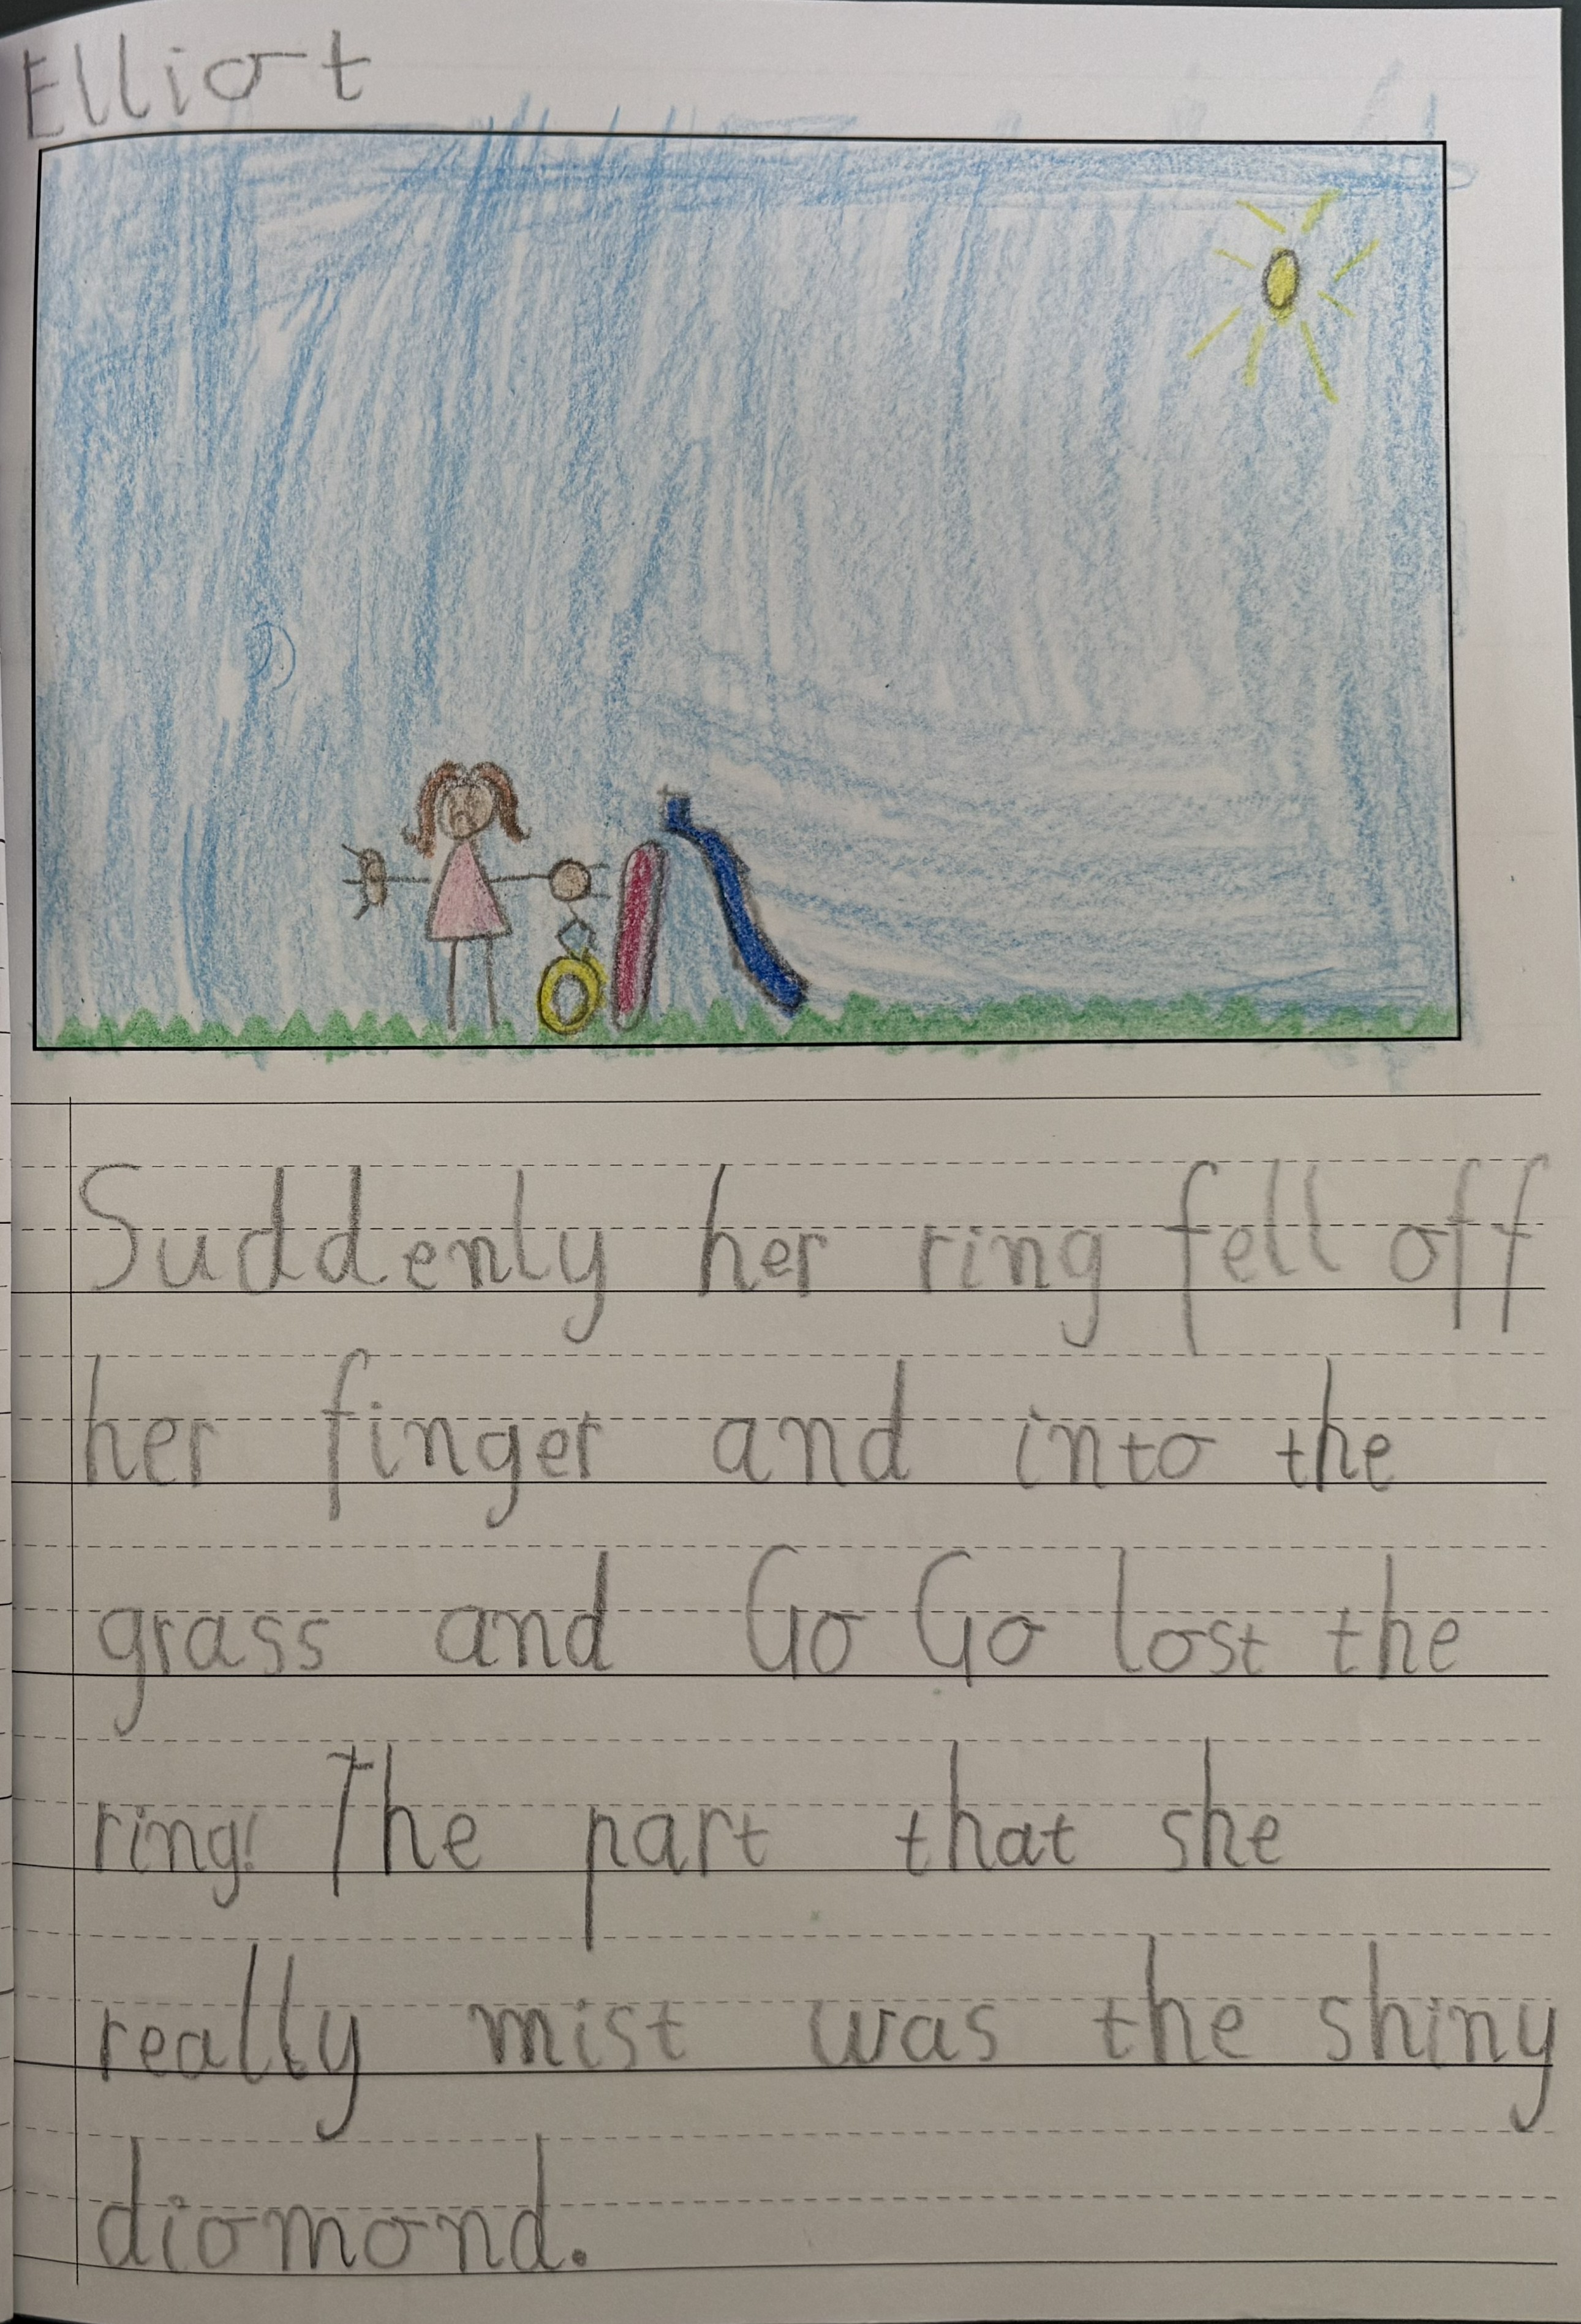 Elliot
Suddenly her ring fell off
her finger and into the
grass and Go Go lost the
ring! The part that she
really mist was the shiny
diomond.